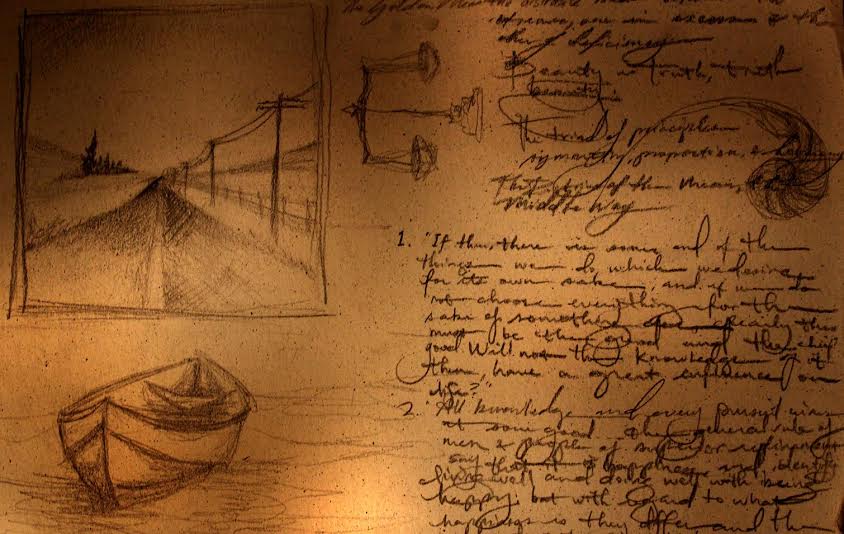 The Golden Mean the distance
of excess, one in excess & the
other of deficiency
Beauty is Truth, truth
beauty
The triad of principles
symmetry, proportion, & harmony
The of the Mean, the
Middle Way
1. "If then, there is some end of the
things we do, which we desire
for its own sake, and if we do
not choose everything for the
sake of something else, clearly this
must be the good and the chief
good. Will not the knowledge of it
then, have a great influence on
life?"
2. All knowledge and every pursuit aims
at some good. the general rule of
men & people of superior refinement
say that it is happiness and identify
living well and doing well with being
happy; but with regard to what
happiness is they differ and the